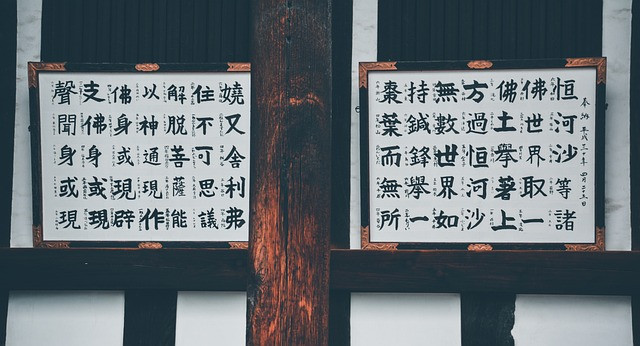 奉納 平成三十年 四月
恒河沙等諸
佛世界取一
佛土擧著上
方過恒河沙
無數世界如
持鍼鋒擧一
棗葉而無所
嬈又舍利弗
住不可思議
解脫菩薩能
以神通現作
佛身或現辟
支佛身或現
聲聞身或現